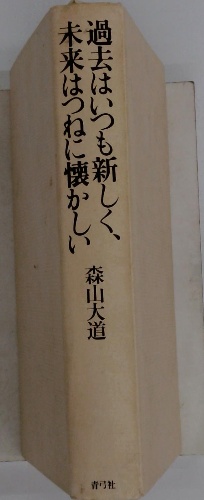 過去はいつも新しく、
未来はつねに懐かしい
森山大道
青弓社